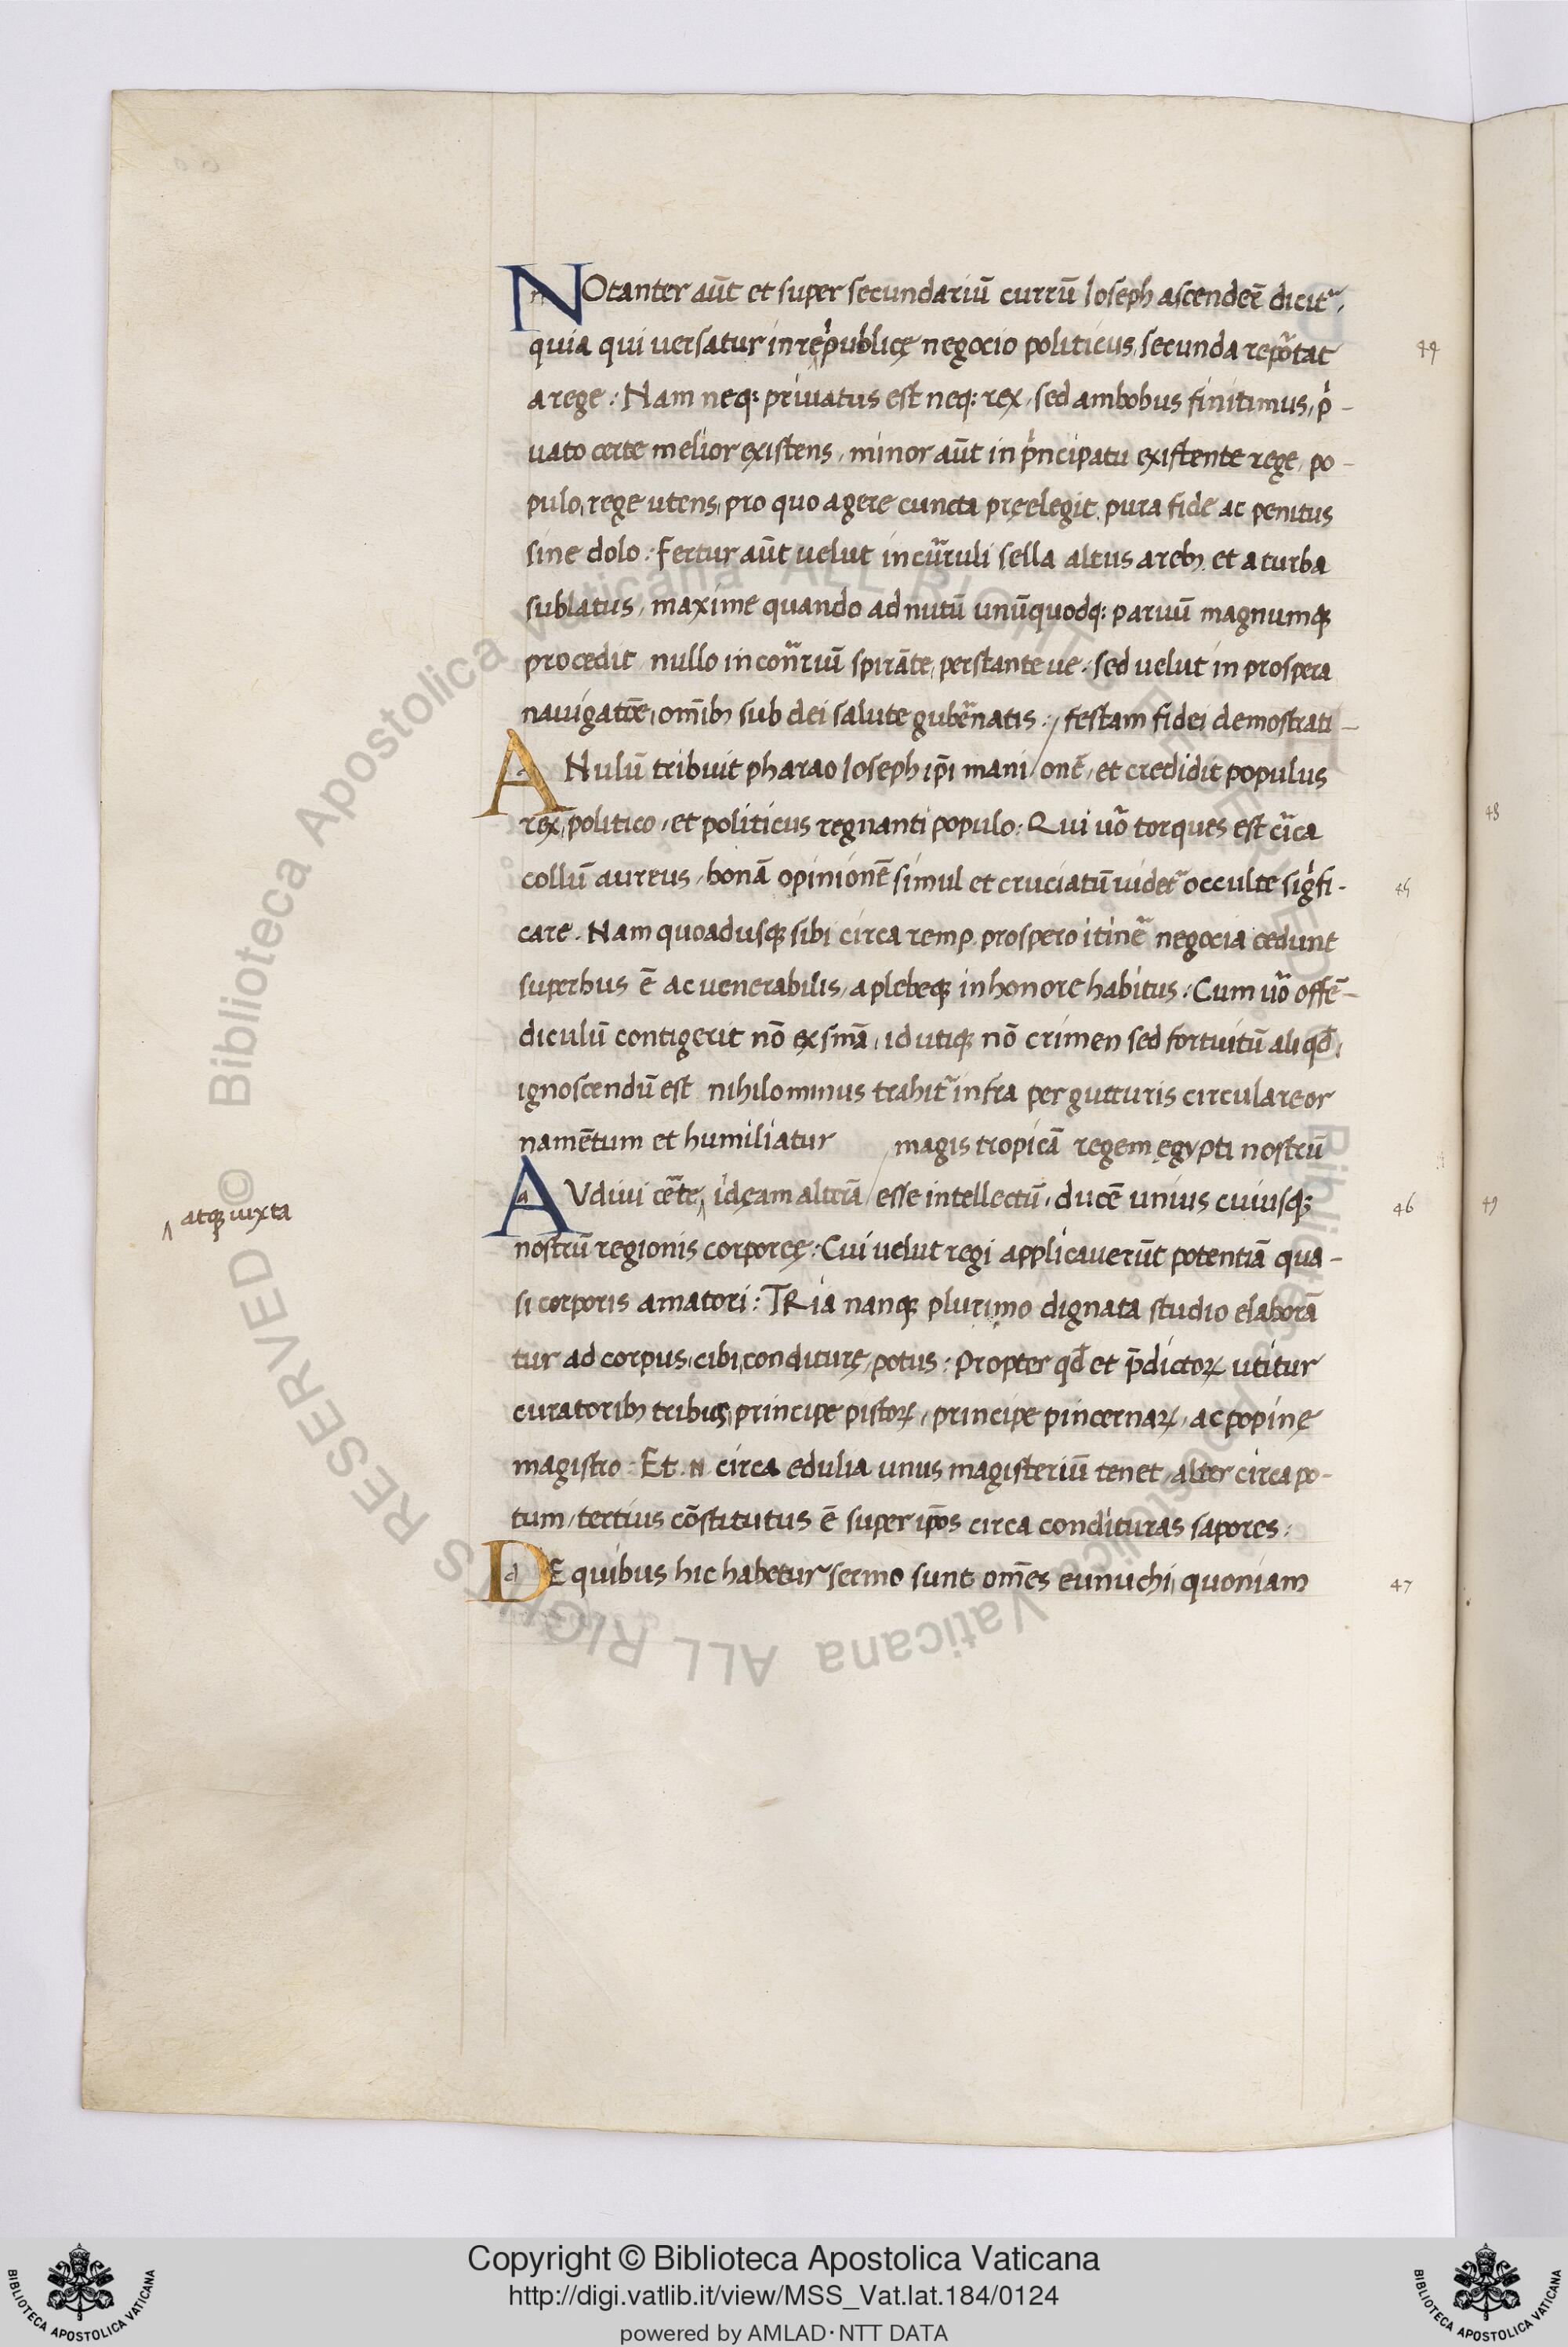 NOtanter aūt et super secundariū currū Ioseph ascender̄ dicit᷑,
quia qui uersatur in reṗublicę negocio politicus, secunda reportat
a rege: Nam neq; priuatus est neq; rex, sed ambobus finitimus, p̍-
uato certe melior existens, minor aūt in p̍ncipatu existente rege, po-
pulo, rege utens, pro quo agere cuncta pręelegit pura fide ac penitus
sine dolo: fertur aūt velut in curuli sella altus a reb; et a turba
sublatus, maxime quando ad nutū unūquodq; paruū magnumq;
procedit nullo in contrariū spirāte, perstante ue. sed velut in prospera
nauigatōe, omīb; sub dei salute gubernatis: / festam fidei demostrati-
ANulū tribuit pharao Ioseph ip̄i mani / onē, et credidit populus
rex, politico, et politicus regnanti populo: Qui uo torques est circa
collū aureus, bonā opinionē simul et cruciatū uidet᷑ occulte sig̍fi-
care. Nam quoadusq; sibi circa remp. prospero itinere negocia cedunt
superbus ē ac uenerabilis, a plebeq; in honore habitus: Cum uo offē-
diculū contigerit nō ex snīa, id utiq; nō crimen sed fortuitū aliqd,
ignoscendū est nihilominus trahit᷑ infra per gutturis circulare or
namēntum et humiliatur / magis tropicā regem egypti nostrū
AVdiui certe, idęam alterā / esse intellectū, ducē unius cuiusq;
^ atq; iuxta
nostrū regionis corporeę: Cui velut regi applicauerūt potentiā qua-
si corporis amatori: TRia nanq; plurimo dignata studio elaborā
tur ad corpus, cibi, conditurę, potus: Propter qd et p̄dictoꝝ utitur
curatorib; tribus, principe pistoꝝ, principe pincernaꝝ, ac popinę
magistro: Et .n. circa edulia unus magisteriū tenet, alter circa po-
tum, tertius cōstitutus ē super ip̄os circa condituras sapores:
DE quibus hic habetur sermo sunt om̄es eunuchi, quoniam
44
45
46
47
48
49
© Biblioteca Apostolica Vaticana ALL RIGHTS RESERVED
Copyright © Biblioteca Apostolica Vaticana
http://digi.vatlib.it/view/MSS_Vat.lat.184/0124
powered by AMLAD·NTT DATA
BIBLIOTECA APOSTOLICA VATICANA
BIBLIOTECA APOSTOLICA VATICANA